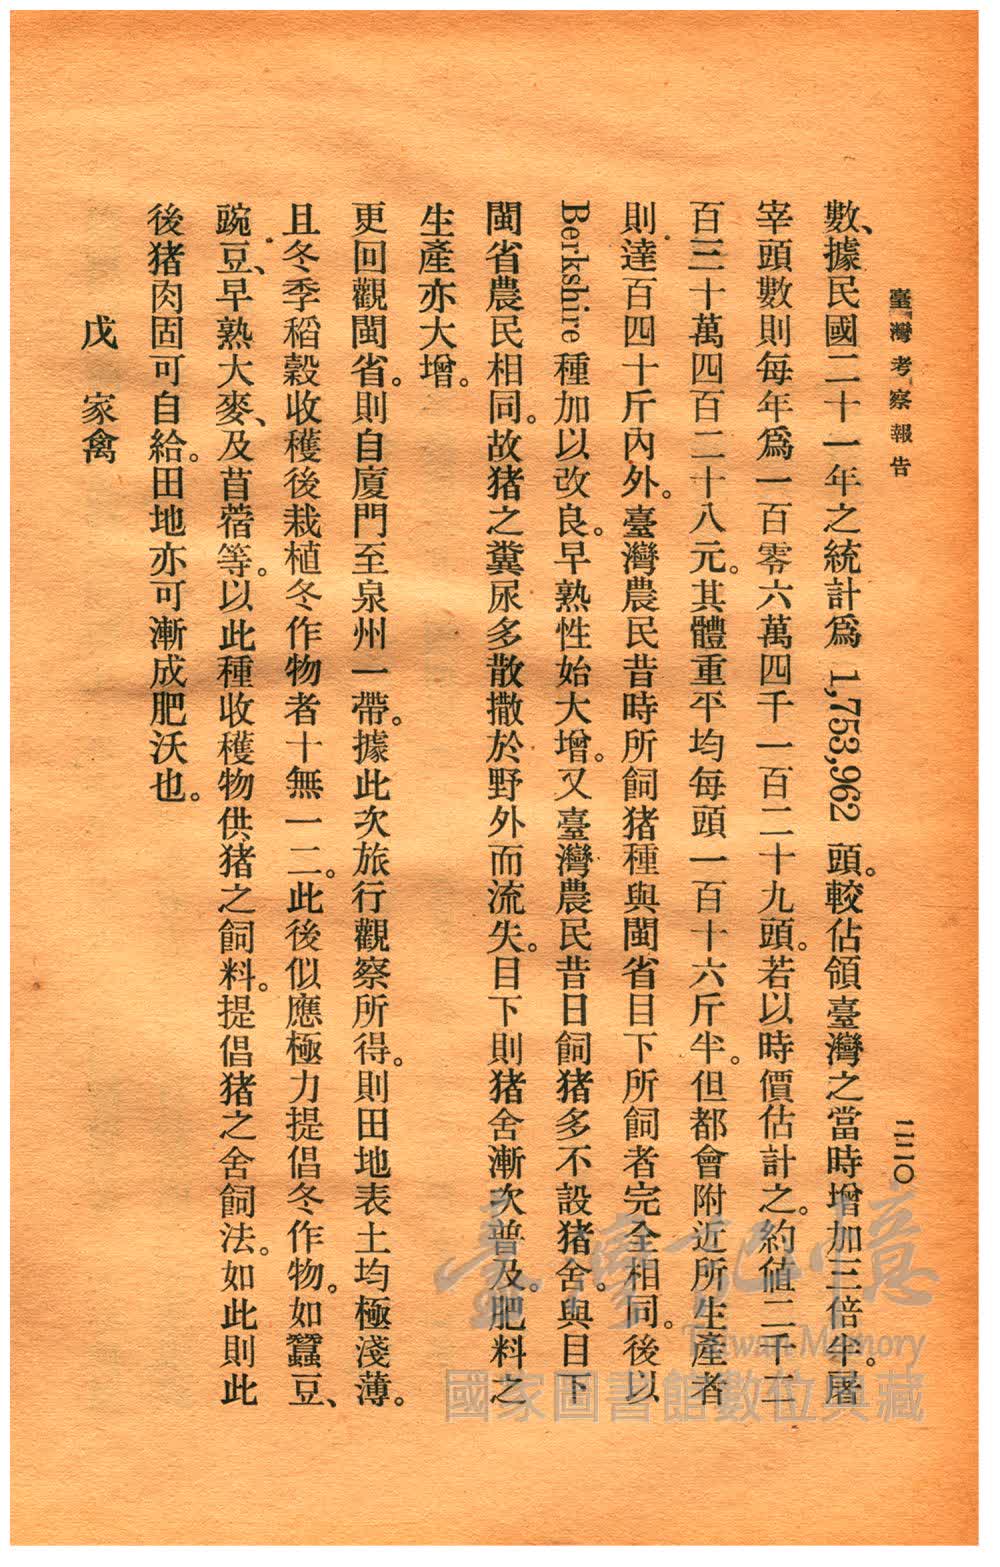 臺灣考察報告
二二〇
數、據民國二十一年之統計爲 1,753,962 頭。較佔領臺灣之當時增加三倍半。屠
宰頭數則每年爲一百零六萬四千一百二十九頭。若以時價估計之。約値二千二
百三十萬四百二十八元。其體重平均每頭一百十六斤半。但都會附近所生產者
則達百四十斤內外。臺灣農民昔時所飼猪種與閩省目下所飼者完全相同。後以
Berkshire 種加以改良。早熟性始大增。又臺灣農民昔日飼猪多不設猪舍。與目下
閩省農民相同。故猪之糞尿多散撒於野外而流失。目下則猪舍漸次普及。肥料之
生產亦大增。
更回觀閩省。則自廈門至泉州一帶。據此次旅行觀察所得。則田地表土均極淺薄。
且冬季稻穀收穫後栽植冬作物者十無一二。此後似應極力提倡冬作物。如蠶豆、
豌豆、早熟大麥、及苜蓿等。以此種收穫物供猪之飼料。提倡猪之舍飼法。如此則此
後猪肉固可自給。田地亦可漸成肥沃也。
戊　家禽
臺灣記憶
Taiwan Memory
國家圖書館數位典藏